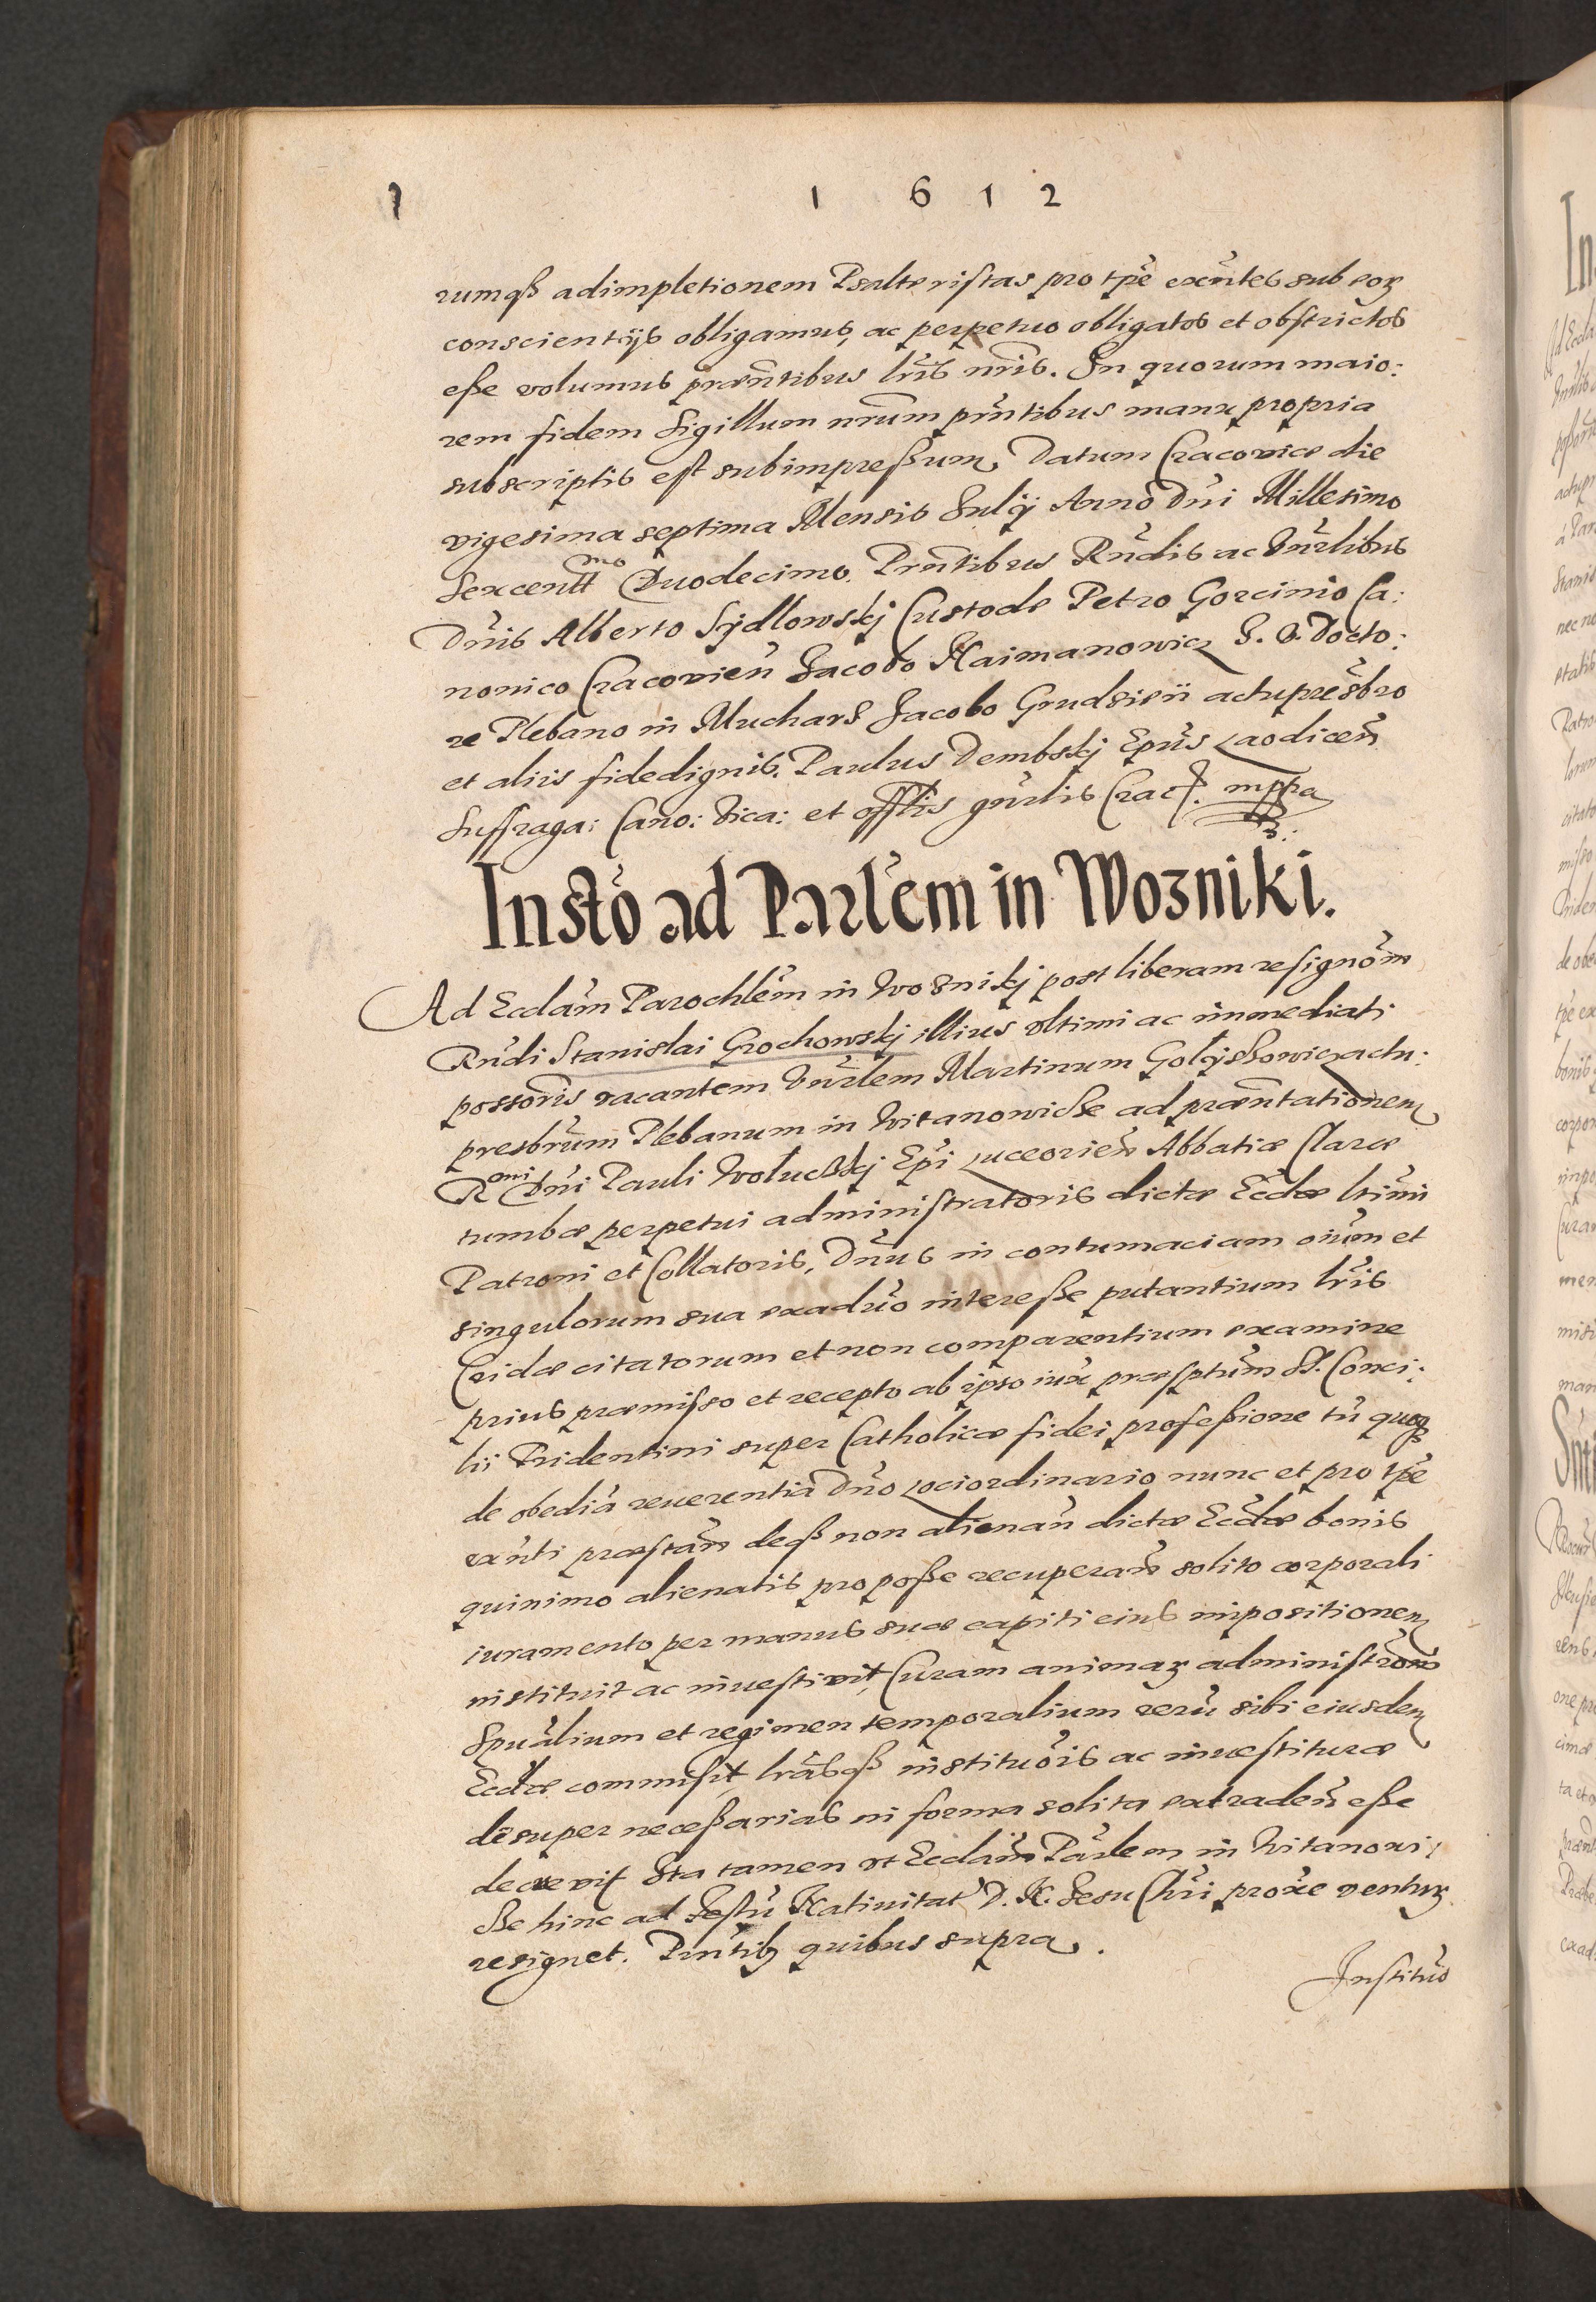 1 6 1 2
rumqß adimpletionem Psalteristas pro tpē exn̄tes sub eoꝝ
conscientijs obligamus, ac perpetuo obligatos et obstrictos
eße volumus præsn̄tibus lrīs nrīs. In quorum maio:
rem fidem Sigillum nrūm prn̄tibus manu propria
subscriptis est subimpreßum. Datum Cracoviæ die
vigesima septima Mensis Julij Anno Dnī Millesimo
Sexcentt mo Duodecimo. Prn̄tibus Rndīs ac Vnrlībus
Dnīs Alberto Sydlowskj Custode Petro Gorcinio Ca:
nonico Cracovien̄ Jacobo Naimanowicz J. V. Docto:
re Plebano in Mucharz Jacobo Grudzień actupresb̄ro
et aliis fidedignis. Paulus Dembskj Epūs Laodicen̄
Suffraga: Cano: Vica: et offlis gnrlīs Crac. mppa
Instō ad Parlēm in Wozniki.
Ad Eccłam Parochlēm in Woznikj post liberam resignōm
Rndī Stanislai Grochowskj illius vltimi ac immediati
possorīs vacantem Vnrlēm Martinum Golyszowicz actu:
presbrūm Plebanum in Witanowicze ad præsn̄tationem
R mi Dnī Pauli Woluczkj Epī Luceorien̄ Abbatiæ Claræ
tumbæ perpetui administratoris dictæ Eccłæ ltīmi
Patroni et Collatoris, Dnūs in contumaciam oīum et
singulorum sua exaduo intereße putantium lrīs
Cridæ citatorum et non comparentium examine
prius præmisso et recepto ab ipso iux̄ præsptūm SS. Conci:
lii Tridentini super Catholicæ fidei profeßione tū quoq̄
de obediā reuerentia Dnō Loci ordinario nunc et pro tpē
exn̄ti præstan̄ deqß non alienan̄ dictæ Eccłæ bonis
quinimo alienatis pro poße recuperan̄ solito corporali
iuramento per manus suæ capiti eius impositionem
instituit ac inuestivit Curam animaꝝ administrōm
Spūalium et regimen temporalium rerū sibi eiusdem
Eccłæ commisit, lrāsqß institūois ac inuestituræ
desuper neceßarias in forma solita extraden̄ eße
decrevit Ita tamen vt Eccłam Parlem in Witanowi:
cze hinc ad Festū Natiuitat̄ D. N. Jesu Chrī proxe ventuꝝ
resignet. Prn̄tibꝫ quibus supra.
Institūo